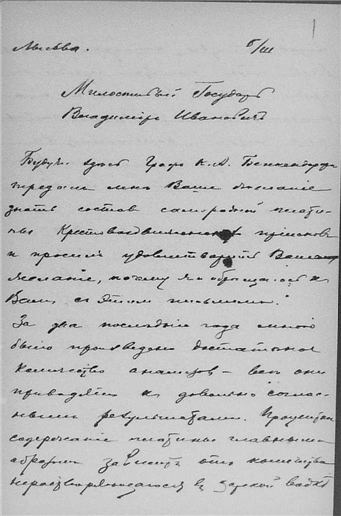 Лысьва. 5/III
1
Милостивый Государь
Владимiръ Ивановичъ
Будучи здѣсь Графъ К. А. Бенкендорфъ
передалъ мнѣ Ваше желанie
знать составъ самородной плати-
ны Крестовоздвиженскихъ прiисковъ
и просилъ удовлетворить Вашему
желанiю, почему я и обращаюсь къ
Вамъ съ этимъ письмомъ.
За два послѣднie года мною
было произведено достаточное
количество анализовъ – всѣ они
приводятъ къ довольно соглас-
нымъ результатамъ. Процентное
содержанie платины главнымъ
образомъ зависитъ отъ количества
нерастворяющагося въ царской водкѣ